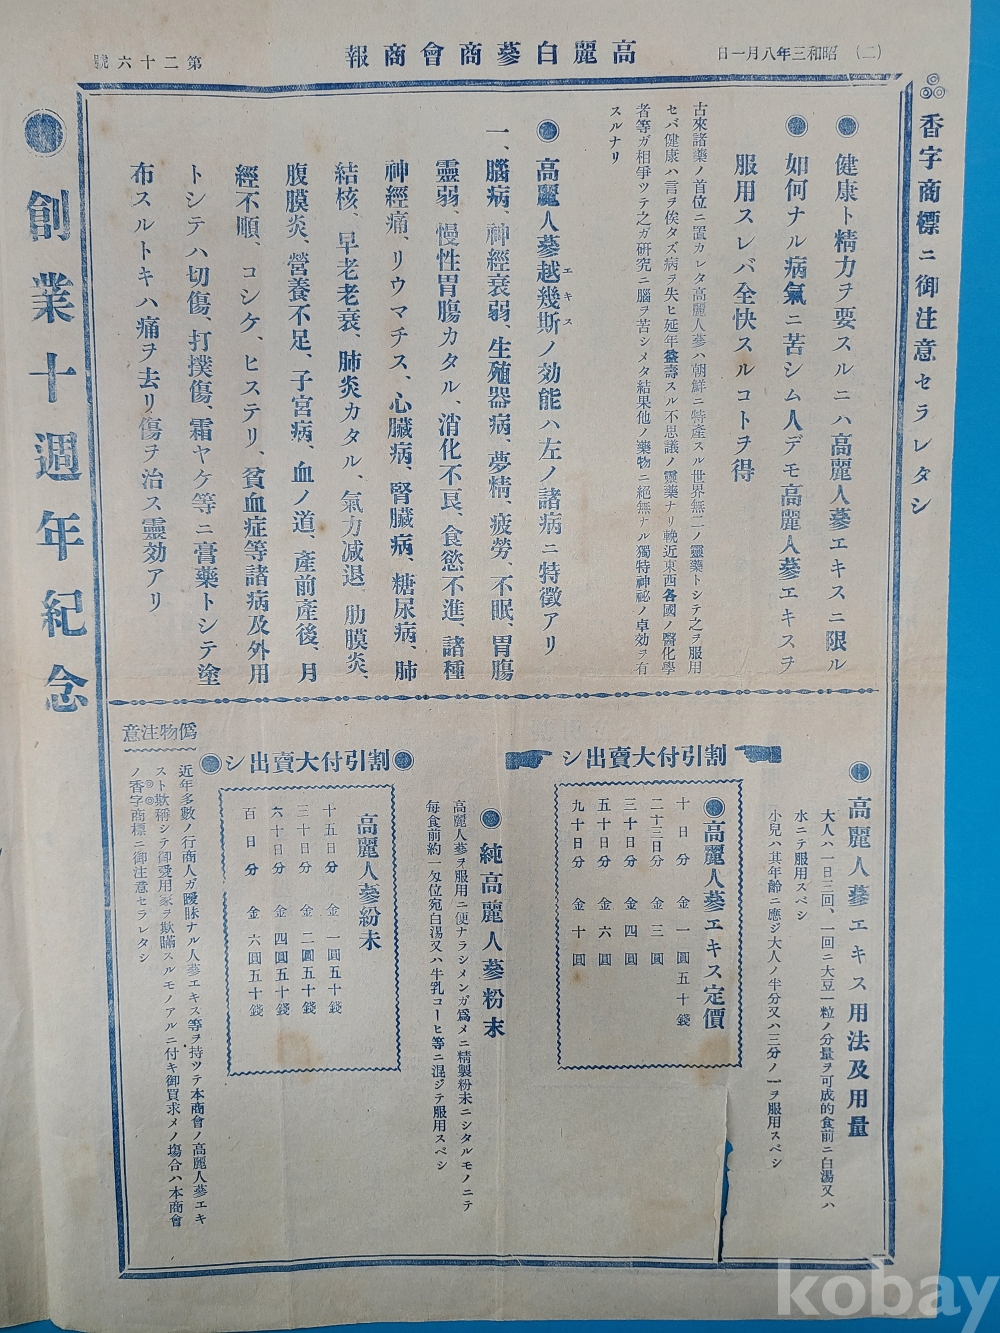 (二) 昭和三年八月一日
高麗白蔘商會商報
第二十六號
香字商標ニ御注意セラレタシ
●健康ト精力ヲ要スルニハ高麗人蔘エキスニ限ル
●如何ナル病氣ニ苦シム人デモ高麗人蔘エキスヲ
服用スレバ全快スルコトヲ得
古來諸藥ノ首位ニ置カレタ高麗人蔘ハ朝鮮ニ特產スル世界無二ノ靈藥トシテ之ヲ服用
セバ健康ハ言ヲ俟タズ病ヲ失ヒ延年益壽スル不思議ノ靈藥ナリ輓近東西各國ノ醫化學
者等ガ相爭ツテ之ガ硏究ニ腦ヲ苦シメタ結果他ノ藥物ニ絕無ナル獨特神祕ノ卓効ヲ有
スルナリ
●高麗人蔘越幾斯ノ効能ハ左ノ諸病ニ特徵アリ
エキス
一、腦病、神經衰弱、生殖器病、夢精、疲勞、不眠、胃腸
靈弱、慢性胃腸カタル、消化不良、食慾不進、諸種
神經痛、リウマチス、心臟病、腎臟病、糖尿病、肺
結核、早老老衰、肺炎カタル、氣力減退、肋膜炎、
腹膜炎、營養不足、子宮病、血ノ道、產前產後、月
經不順、コシケ、ヒステリ、貧血症等諸病及外用
トシテハ切傷、打撲傷、霜ヤケ等ニ膏藥トシテ塗
布スルトキハ痛ヲ去リ傷ヲ治ス靈効アリ
●創業十週年紀念
●高麗人蔘エキス用法及用量
大人ハ一日三回、一回ニ大豆一粒ノ分量ヲ可成的食前ニ白湯又ハ
水ニテ服用スベシ
小兒ハ其年齡ニ應ジ大人ノ半分又ハ三分ノ一ヲ服用スベシ
割引付大賣出シ
●高麗人蔘エキス定價
十日分 金一圓五十錢
二十三日分 金三圓
三十日分 金四圓
五十日分 金六圓
九十日分 金十圓
●純高麗人蔘粉末
高麗人蔘ヲ服用ニ便ナラシメンガ爲メニ精製粉末ニシタルモノニテ
每食前約一匁位宛白湯又ハ牛乳コーヒ等ニ混ジテ服用スベシ
●割引付大賣出シ●
高麗人蔘粉末
十五日分 金一圓五十錢
三十日分 金二圓五十錢
六十日分 金四圓五十錢
百日分 金六圓五十錢
僞物注意
近年多數ノ行商人ガ曖昧ナル人蔘エキス等ヲ持ツテ本商會ノ高麗人蔘エキ
スト欺稱シテ御愛用家ヲ欺瞞スルモノアルニ付キ御買求メノ場合ハ本商會
ノ香字商標ニ御注意セラレタシ
kobay